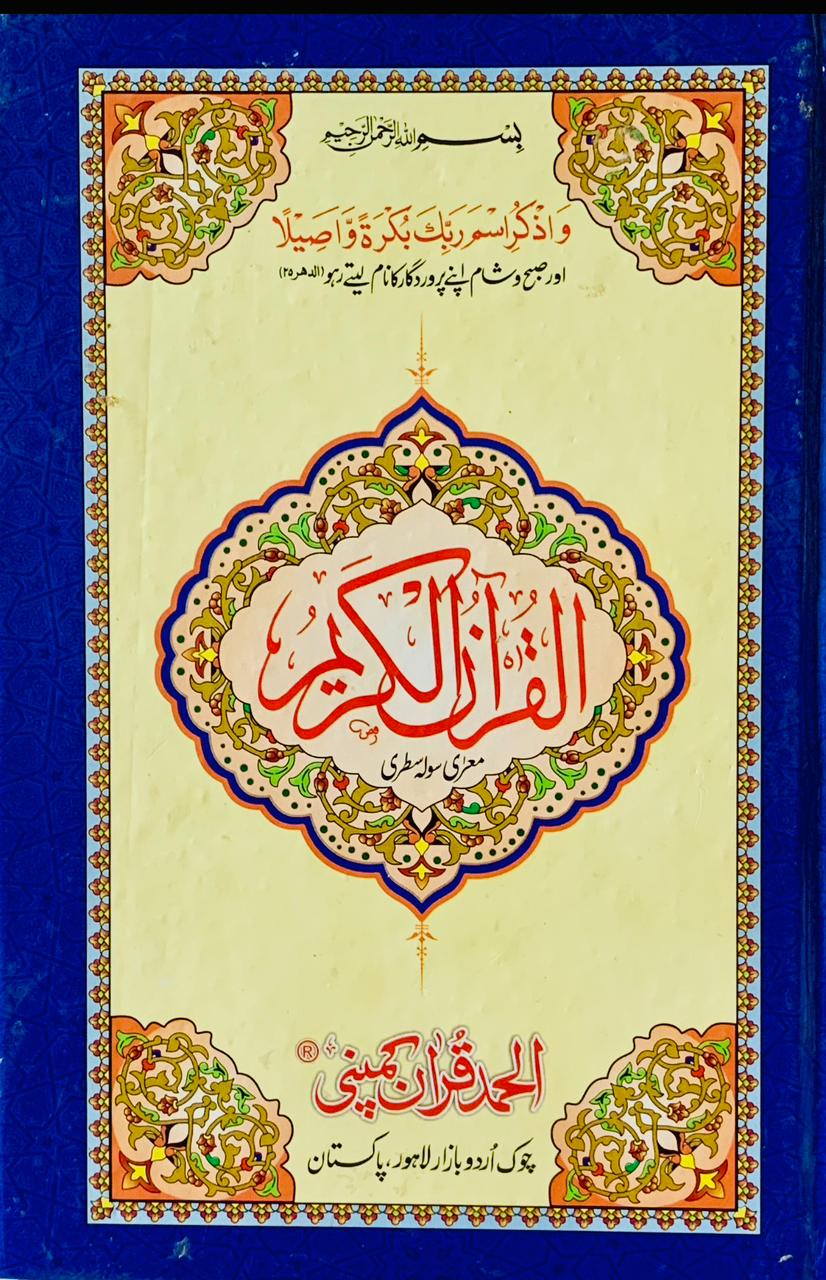 بِسْمِ اللهِ الرَّحْمٰنِ الرَّحِيْمِ
وَاذْكُرِ اسْمَ رَبِّكَ بُكْرَةً وَّاَصِيْلًا
اور صبح و شام اپنے پروردگار کا نام لیتے رہو (الدھر ۲۵)
الْقُرْآنُ الْكَرِيْمُ
معرٰی سولہ سطری
الحمد قُرآن کمپنی ®
چوک اُردو بازار لاہور، پاکستان